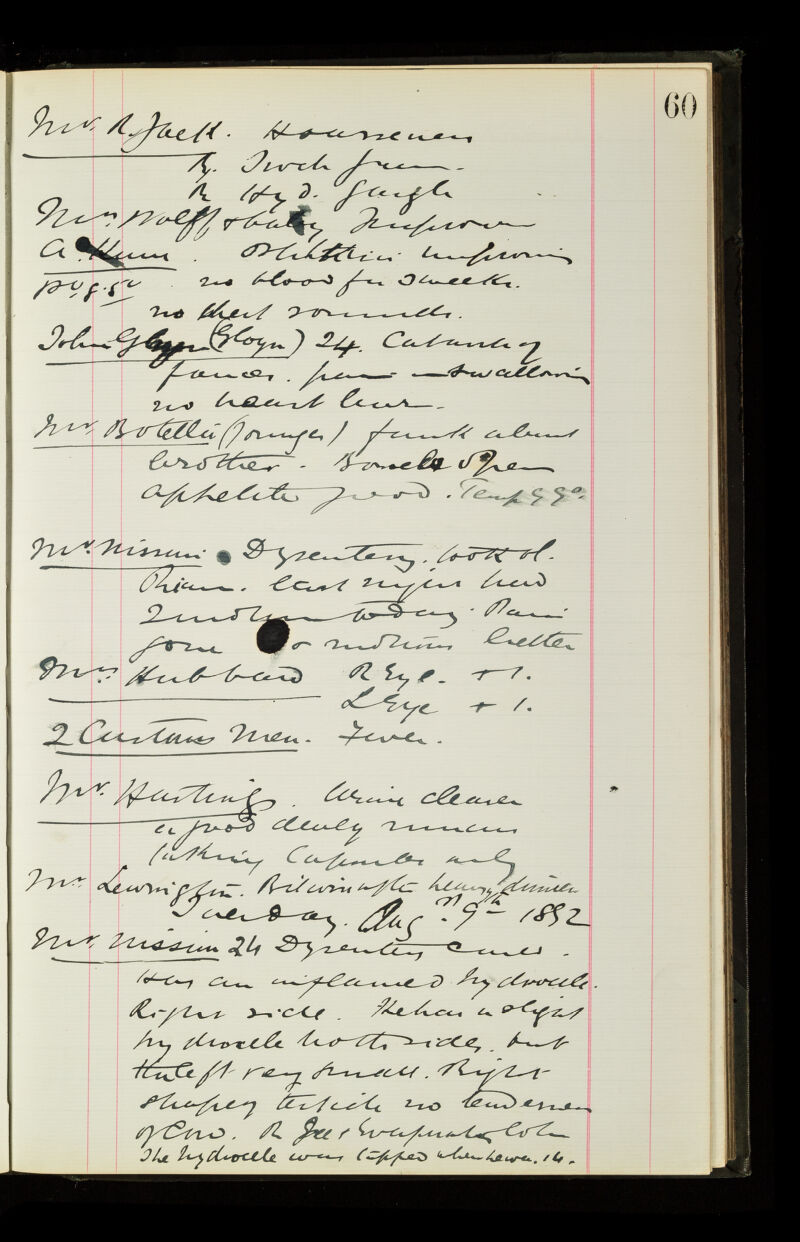 60
Mr. R. Jack. Hoarseness
R. Troch
R Hyd. Gargle
Mrs Wolff & baby Improving
A. improving
no blood for 3 weeks.
no chest sounds.
John (Gloyn) 24. Catarrh of
fauces. pain swallowing
no heart
Mr Botelli (younger) funk about
brother. Bowels open
appetite good. Temp 99°.
Mr. Nissim Dysentery. took ol.
Ricini. last night had
2 motions today. Pain
gone & motions better
Mrs Hubbard R Eye. + 1.
L Eye + 1.
2 Customs Men. Fever.
Mr. Hastings. Urine clearer
a good deal
taking Capsules only
Mr Lewington. after heavy dinner
Tuesday. Aug. 9th 1892
Mr. Nissim 24 Dysentery cured.
Has an inflamed hydrocele.
Right side. He has a slight
hydrocele both sides. but
the left very small. Right
shape testicle no tenderness
of Cord. R Evaporating Lotn
The hydrocele was tapped when he was 14.